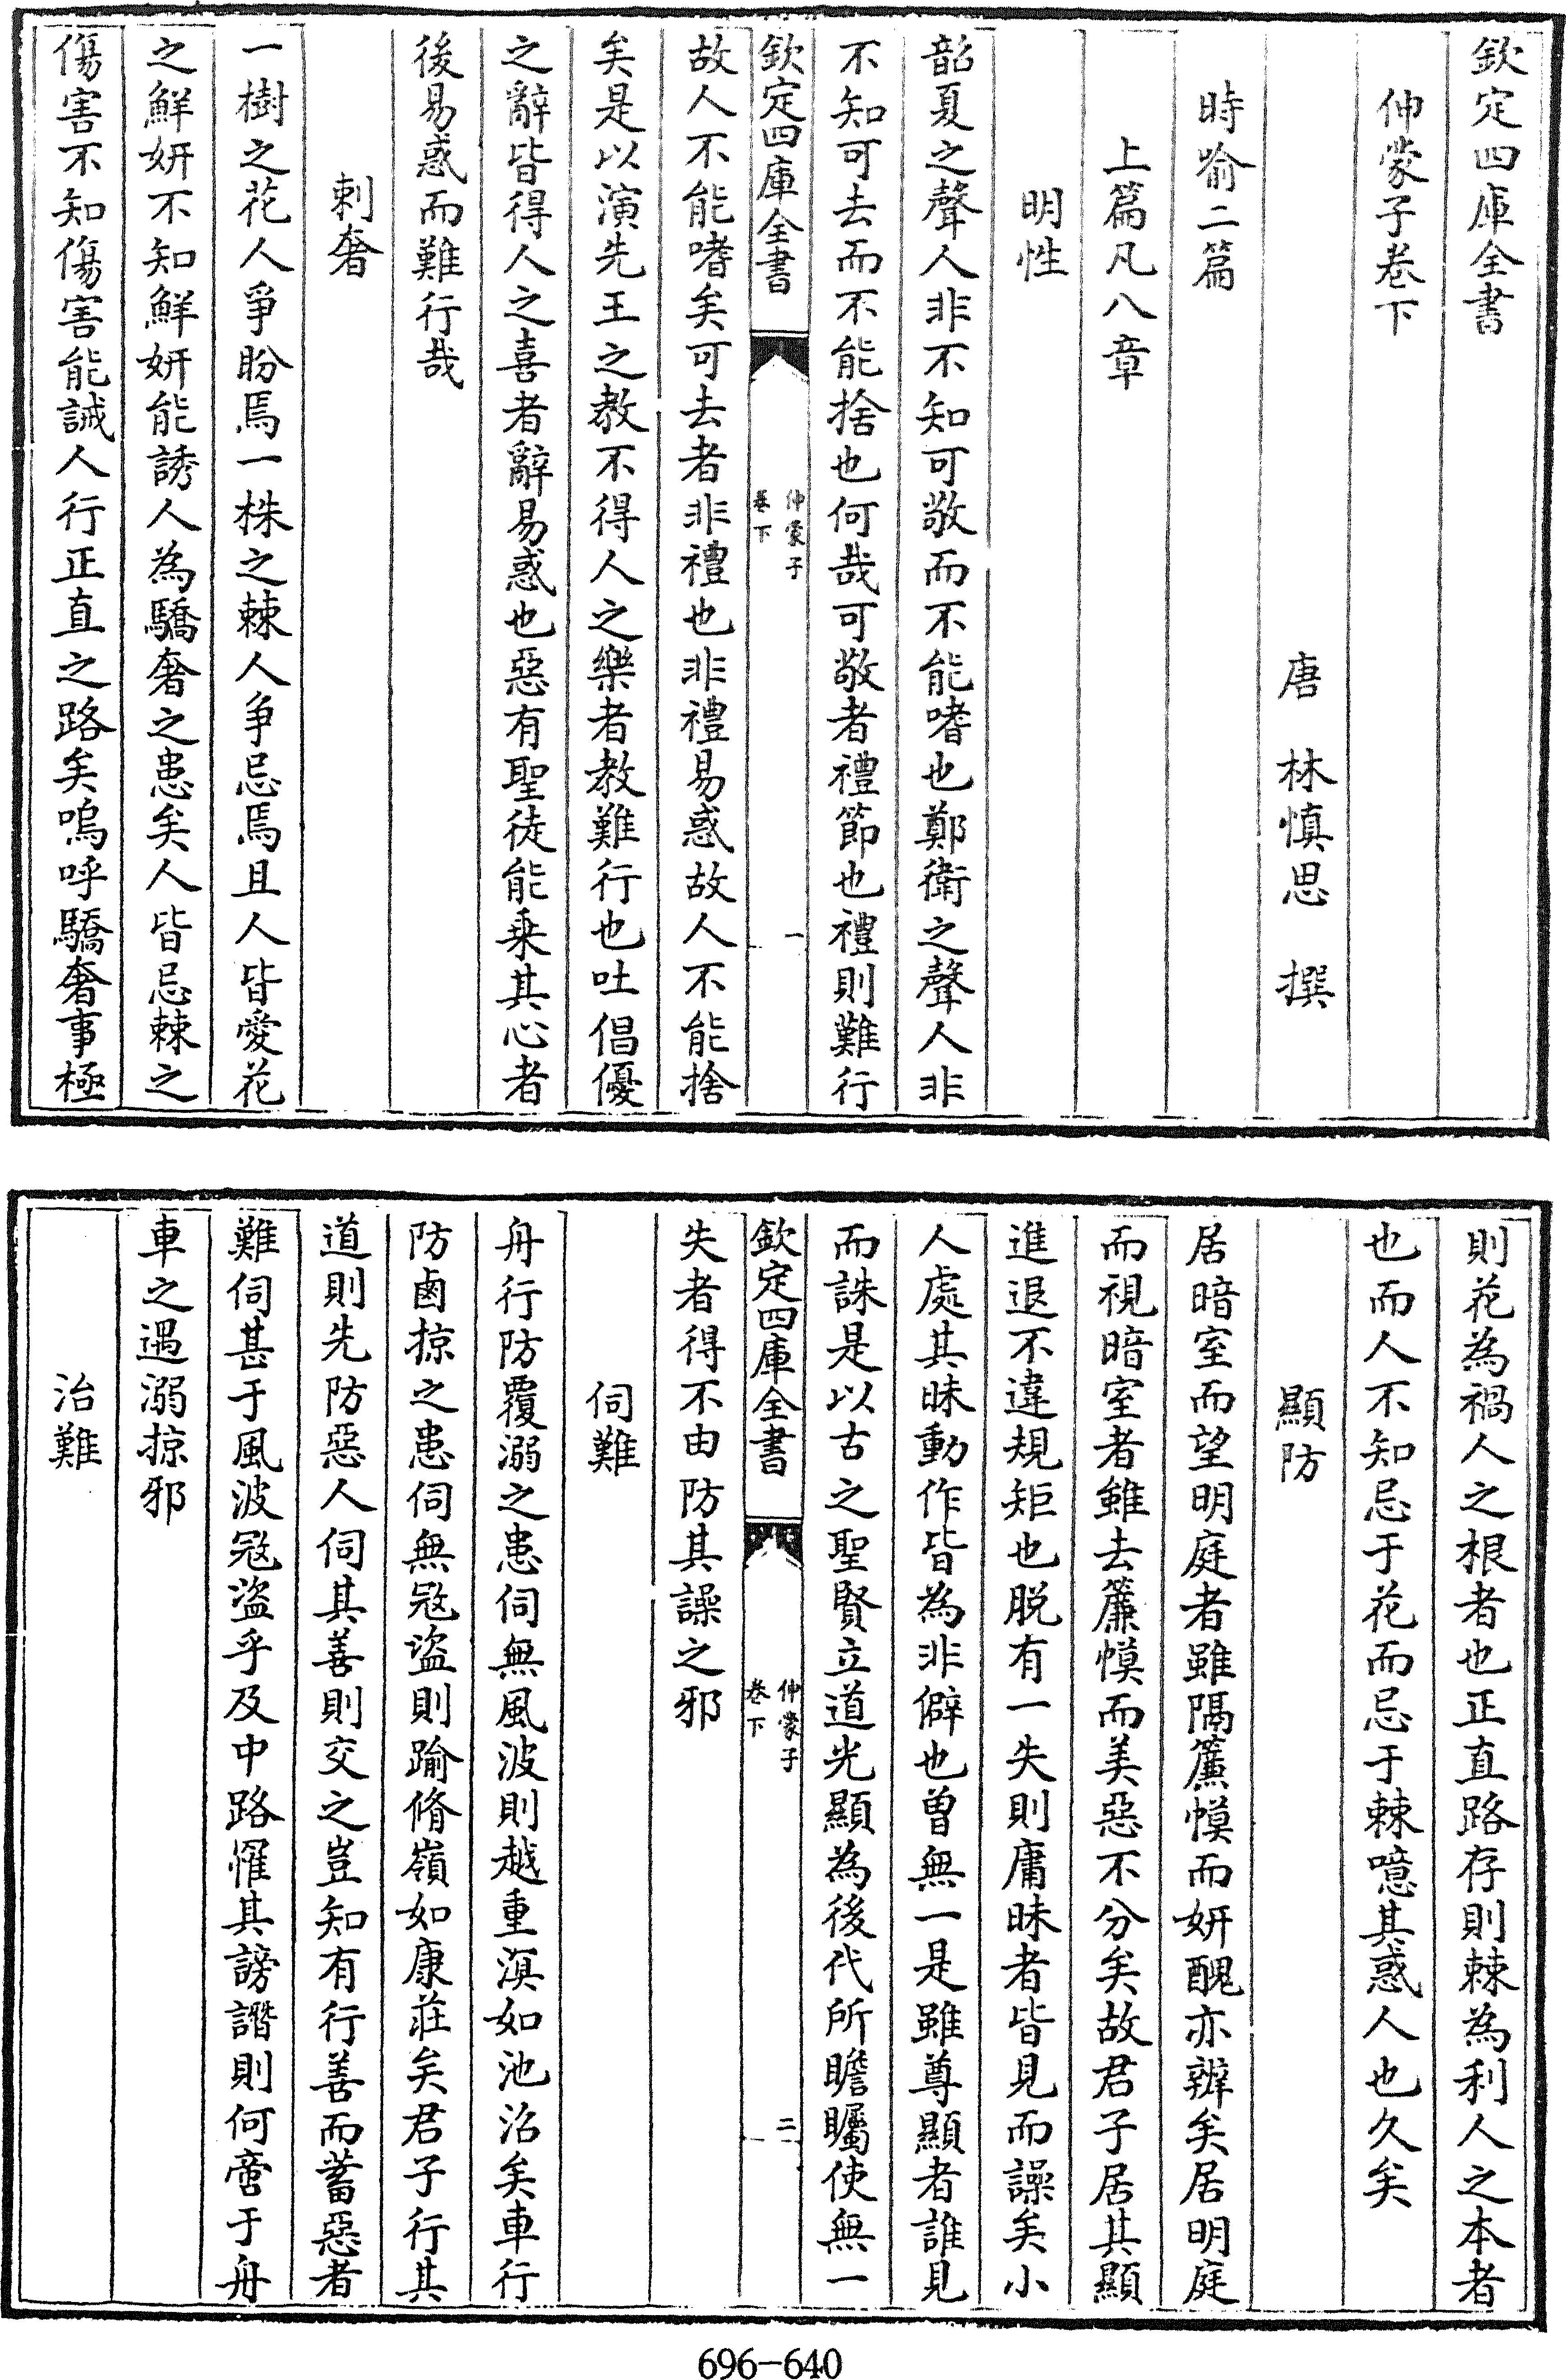 欽定四庫全書
伸蒙子卷下
唐 林慎思 撰
時喻二篇
上篇凡八章
明性
韶夏之聲人非不知可敬而不能嗜也鄭衛之聲人非
不知可去而不能捨也何哉可敬者禮節也禮則難行
欽定四庫全書
伸蒙子
卷下
一
故人不能嗜矣可去者非禮也非禮易惑故人不能捨
矣是以演先王之教不得人之樂者教難行也吐倡優
之辭皆得人之喜者辭易惑也惡有聖徒能乗其心者
後易惑而難行哉
刺奢
一樹之花人爭盼焉一株之棘人爭忌焉且人皆愛花
之鮮妍不知鮮妍能誘人為驕奢之患矣人皆忌棘之
傷害不知傷害能誡人行正直之路矣嗚呼驕奢事極
則花為禍人之根者也正直路存則棘為利人之本者
也而人不知忌于花而忌于棘噫其惑人也久矣
顯防
居暗室而望明庭者雖隔簾幙而妍醜亦辨矣居明庭
而視暗室者雖去簾幙而美惡不分矣故君子居其顯
進退不違規矩也脱有一失則庸昧者皆見而譟矣小
人處其昧動作皆為非僻也曽無一是雖尊顯者誰見
而誅是以古之聖賢立道光顯為後代所瞻矚使無一
欽定四庫全書
伸蒙子
卷下
二
失者得不由防其譟之邪
伺難
舟行防覆溺之患伺無風波則越重溟如池沼矣車行
防鹵掠之患伺無冦盜則踰脩嶺如康莊矣君子行其
道則先防惡人伺其善則交之豈知有行善而蓄惡者
難伺甚于風波冦盜乎及中路罹其謗譖則何啻于舟
車之遇溺掠邪
治難
696-640